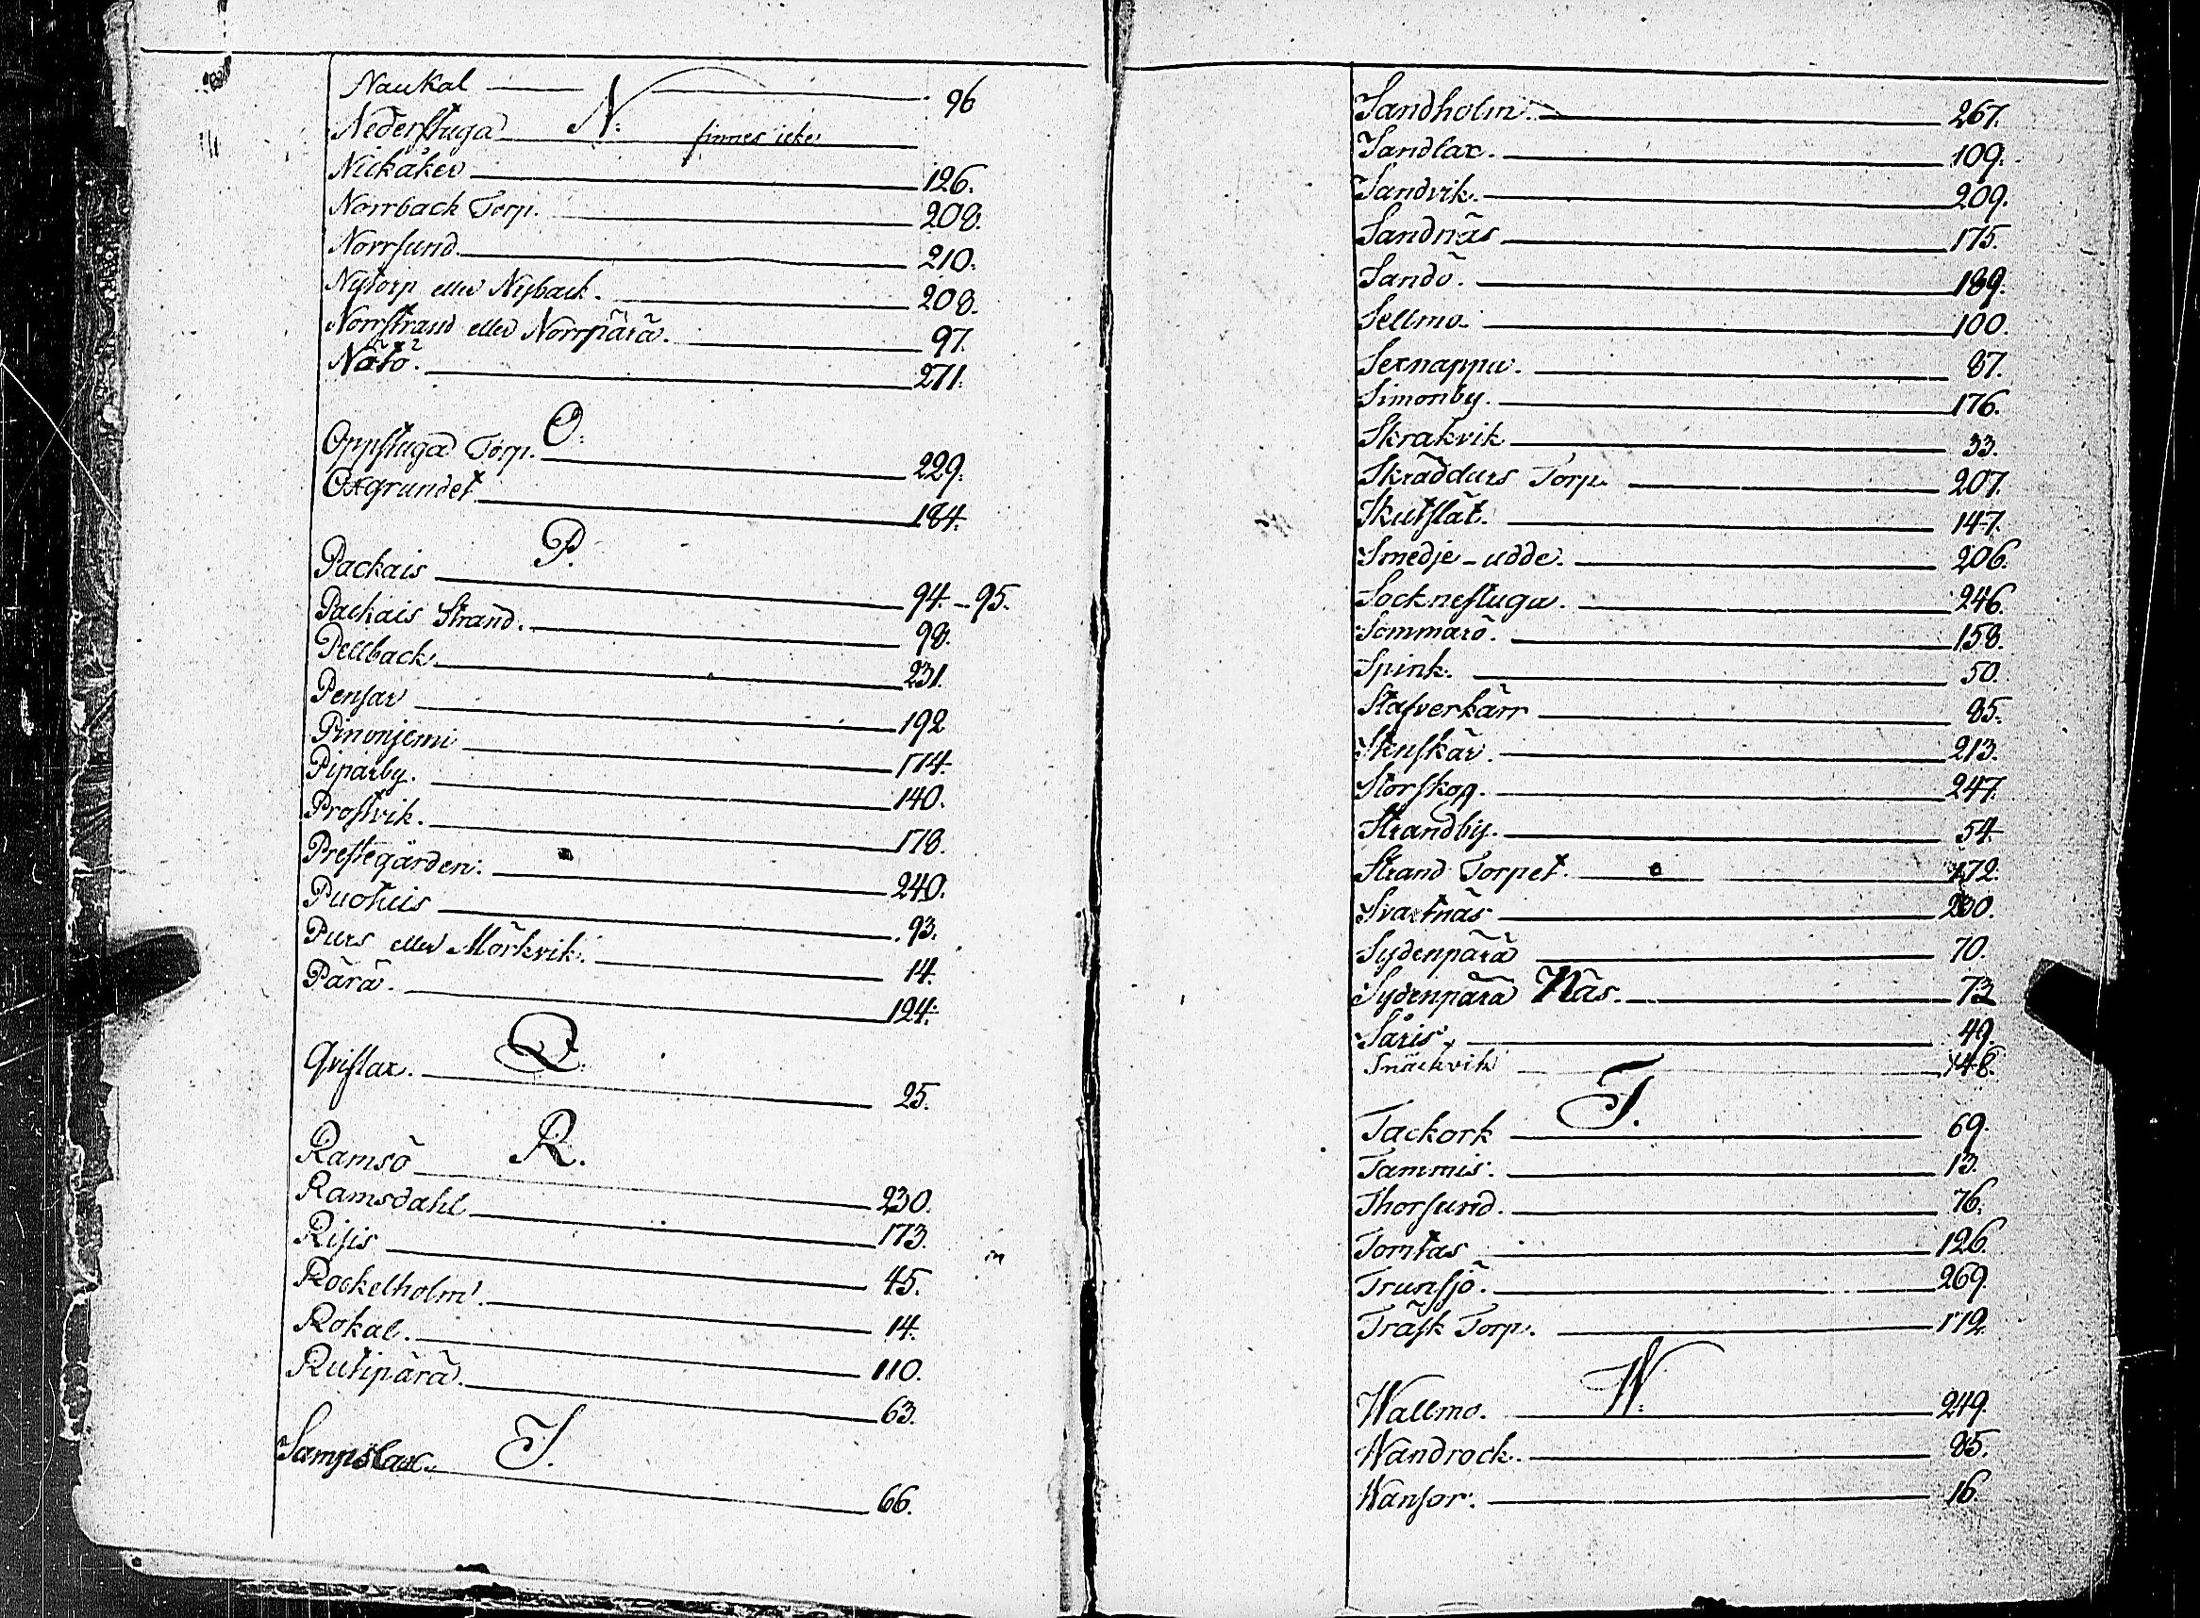 Naukal 96
N:
Nederstuga finnes icke
Nickåker 126.
Norrback Torp. 208.
Norrsund 210.
Nytorp eller Nyback. 208.
Norrstrand eller Norrpärä. 97.
Nötö. 271.
O:
Oppstuga Torp. 229.
Oxgrundet 184.
P.
Packais 94.-95.
Packais Strand. 98.
Pellback 231.
Pensar 192
Pinonjemi 174.
Piparby. 140.
Prostvik. 178.
Prestegården. 240.
Puotuis 93.
Purs eller Mörkvik. 14.
Pärä. 124.
Q.
Qvislax. 25.
R.
Ramsö 230.
Ramsdahl 173.
Risis 45.
Rockelholm. 14.
Rokal. 110.
Rutipärä. 63.
S.
Sampslax. 66.
Sandholm. 267.
Sandlax. 109.
Sandvik. 209.
Sandnäs 175.
Sandö. 189.
Sellmo. 100.
Sexnappa. 87.
Simonby. 176.
Skrakvik 33.
Skräddars Torp. 207.
Skutslät. 147.
Smedje-udde. 206.
Socknestuga. 246.
Sommarö. 158.
Spink. 50.
Stafverkärr 85.
Stenskär. 213.
Storskog. 247.
Strandby. 54
Strand Torpet. 172.
Svartnäs 230.
Sydenpärä 70.
Sydenpärä Näs. 73
Såris. 49.
Snäckvik 148.
T.
Tackork 69.
Tammis. 13.
Thorsund. 76.
Tomtas 126.
Trunsjö. 269.
Träsk Torp. 172.
W.
Wallmo. 249.
Wandrock. 85.
Wansor. 16.